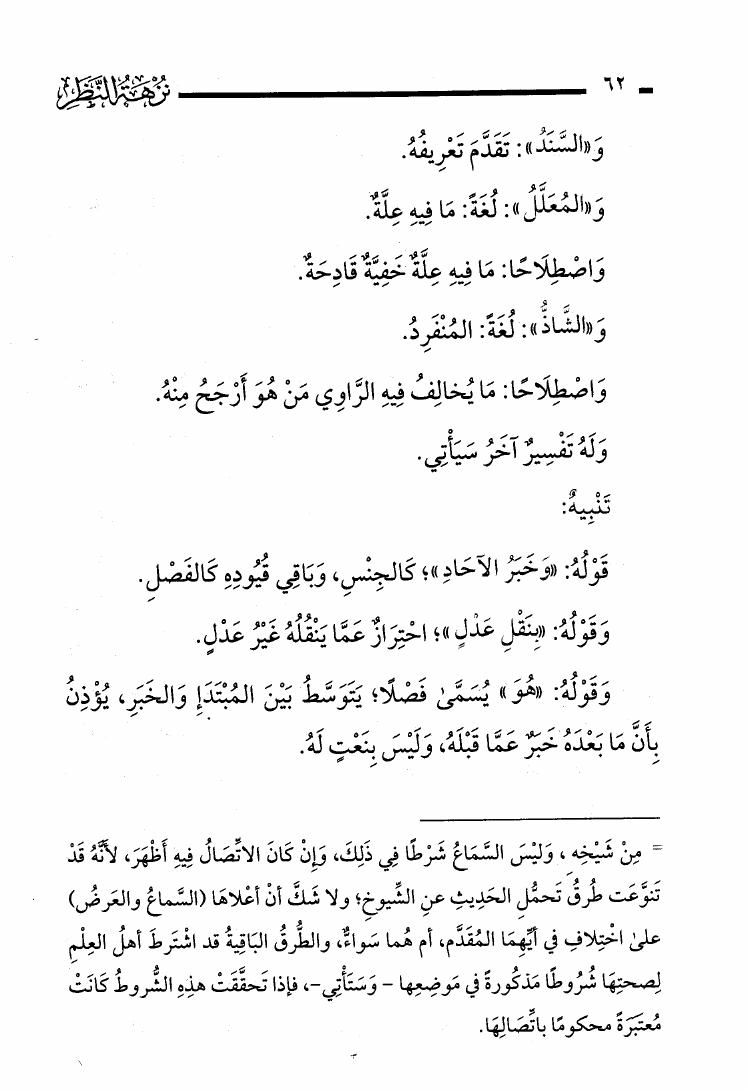 ٦٢ نُزْهَةُ النَّظَرِ
وَ«السَّنَدُ»: تَقَدَّمَ تَعْرِيفُهُ.
وَ«المُعَلَّلُ»: لُغَةً: مَا فِيهِ عِلَّةٌ.
وَاصْطِلَاحًا: مَا فِيهِ عِلَّةٌ خَفِيَّةٌ قَادِحَةٌ.
وَ«الشَّاذُّ»: لُغَةً: المُنْفَرِدُ.
وَاصْطِلَاحًا: مَا يُخَالِفُ فِيهِ الرَّاوِي مَنْ هُوَ أَرْجَحُ مِنْهُ.
وَلَهُ تَفْسِيرٌ آخَرُ سَيَأْتِي.
تَنْبِيهٌ:
قَوْلُهُ: «وَخَبَرُ الآحَادِ»؛ كَالجِنْسِ، وَبَاقِي قُيُودِهِ كَالفَصْلِ.
وَقَوْلُهُ: «بِنَقْلِ عَدْلٍ»؛ احْتِرَازٌ عَمَّا يَنْقُلُهُ غَيْرُ عَدْلٍ.
وَقَوْلُهُ: «هُوَ» يُسَمَّىٰ فَصْلًا؛ يَتَوَسَّطُ بَيْنَ المُبْتَدَإِ وَالخَبَرِ، يُؤْذِنُ
بِأَنَّ مَا بَعْدَهُ خَبَرٌ عَمَّا قَبْلَهُ، وَلَيْسَ بِنَعْتٍ لَهُ.
= مِنْ شَيْخِهِ، وَلَيْسَ السَّمَاعُ شَرْطًا فِي ذَلِكَ، وَإِنْ كَانَ الاتِّصَالُ فِيهِ أَظْهَرَ، لأَنَّهُ قَدْ
تَنوَّعَت طُرقُ تَحمُّلِ الحَدِيثِ عنِ الشِّيوخِ؛ ولا شَكَّ أنْ أعْلاهَا (السَّماعُ والعَرضُ)
علىٰ اخْتِلافٍ في أيِّهِمَا المُقدَّم، أم هُما سَواءٌ، والطُّرقُ البَاقِيةُ قد اشْتَرطَ أهلُ العِلْمِ
لِصحتِهَا شُرُوطًا مَذكُورةً في مَوضِعِها - وَسَتَأْتِي-، فإذا تَحقَّقَتْ هذِهِ الشُّروطُ كَانَتْ
مُعتبَرَةً محكومًا باتِّصَالِهَا.